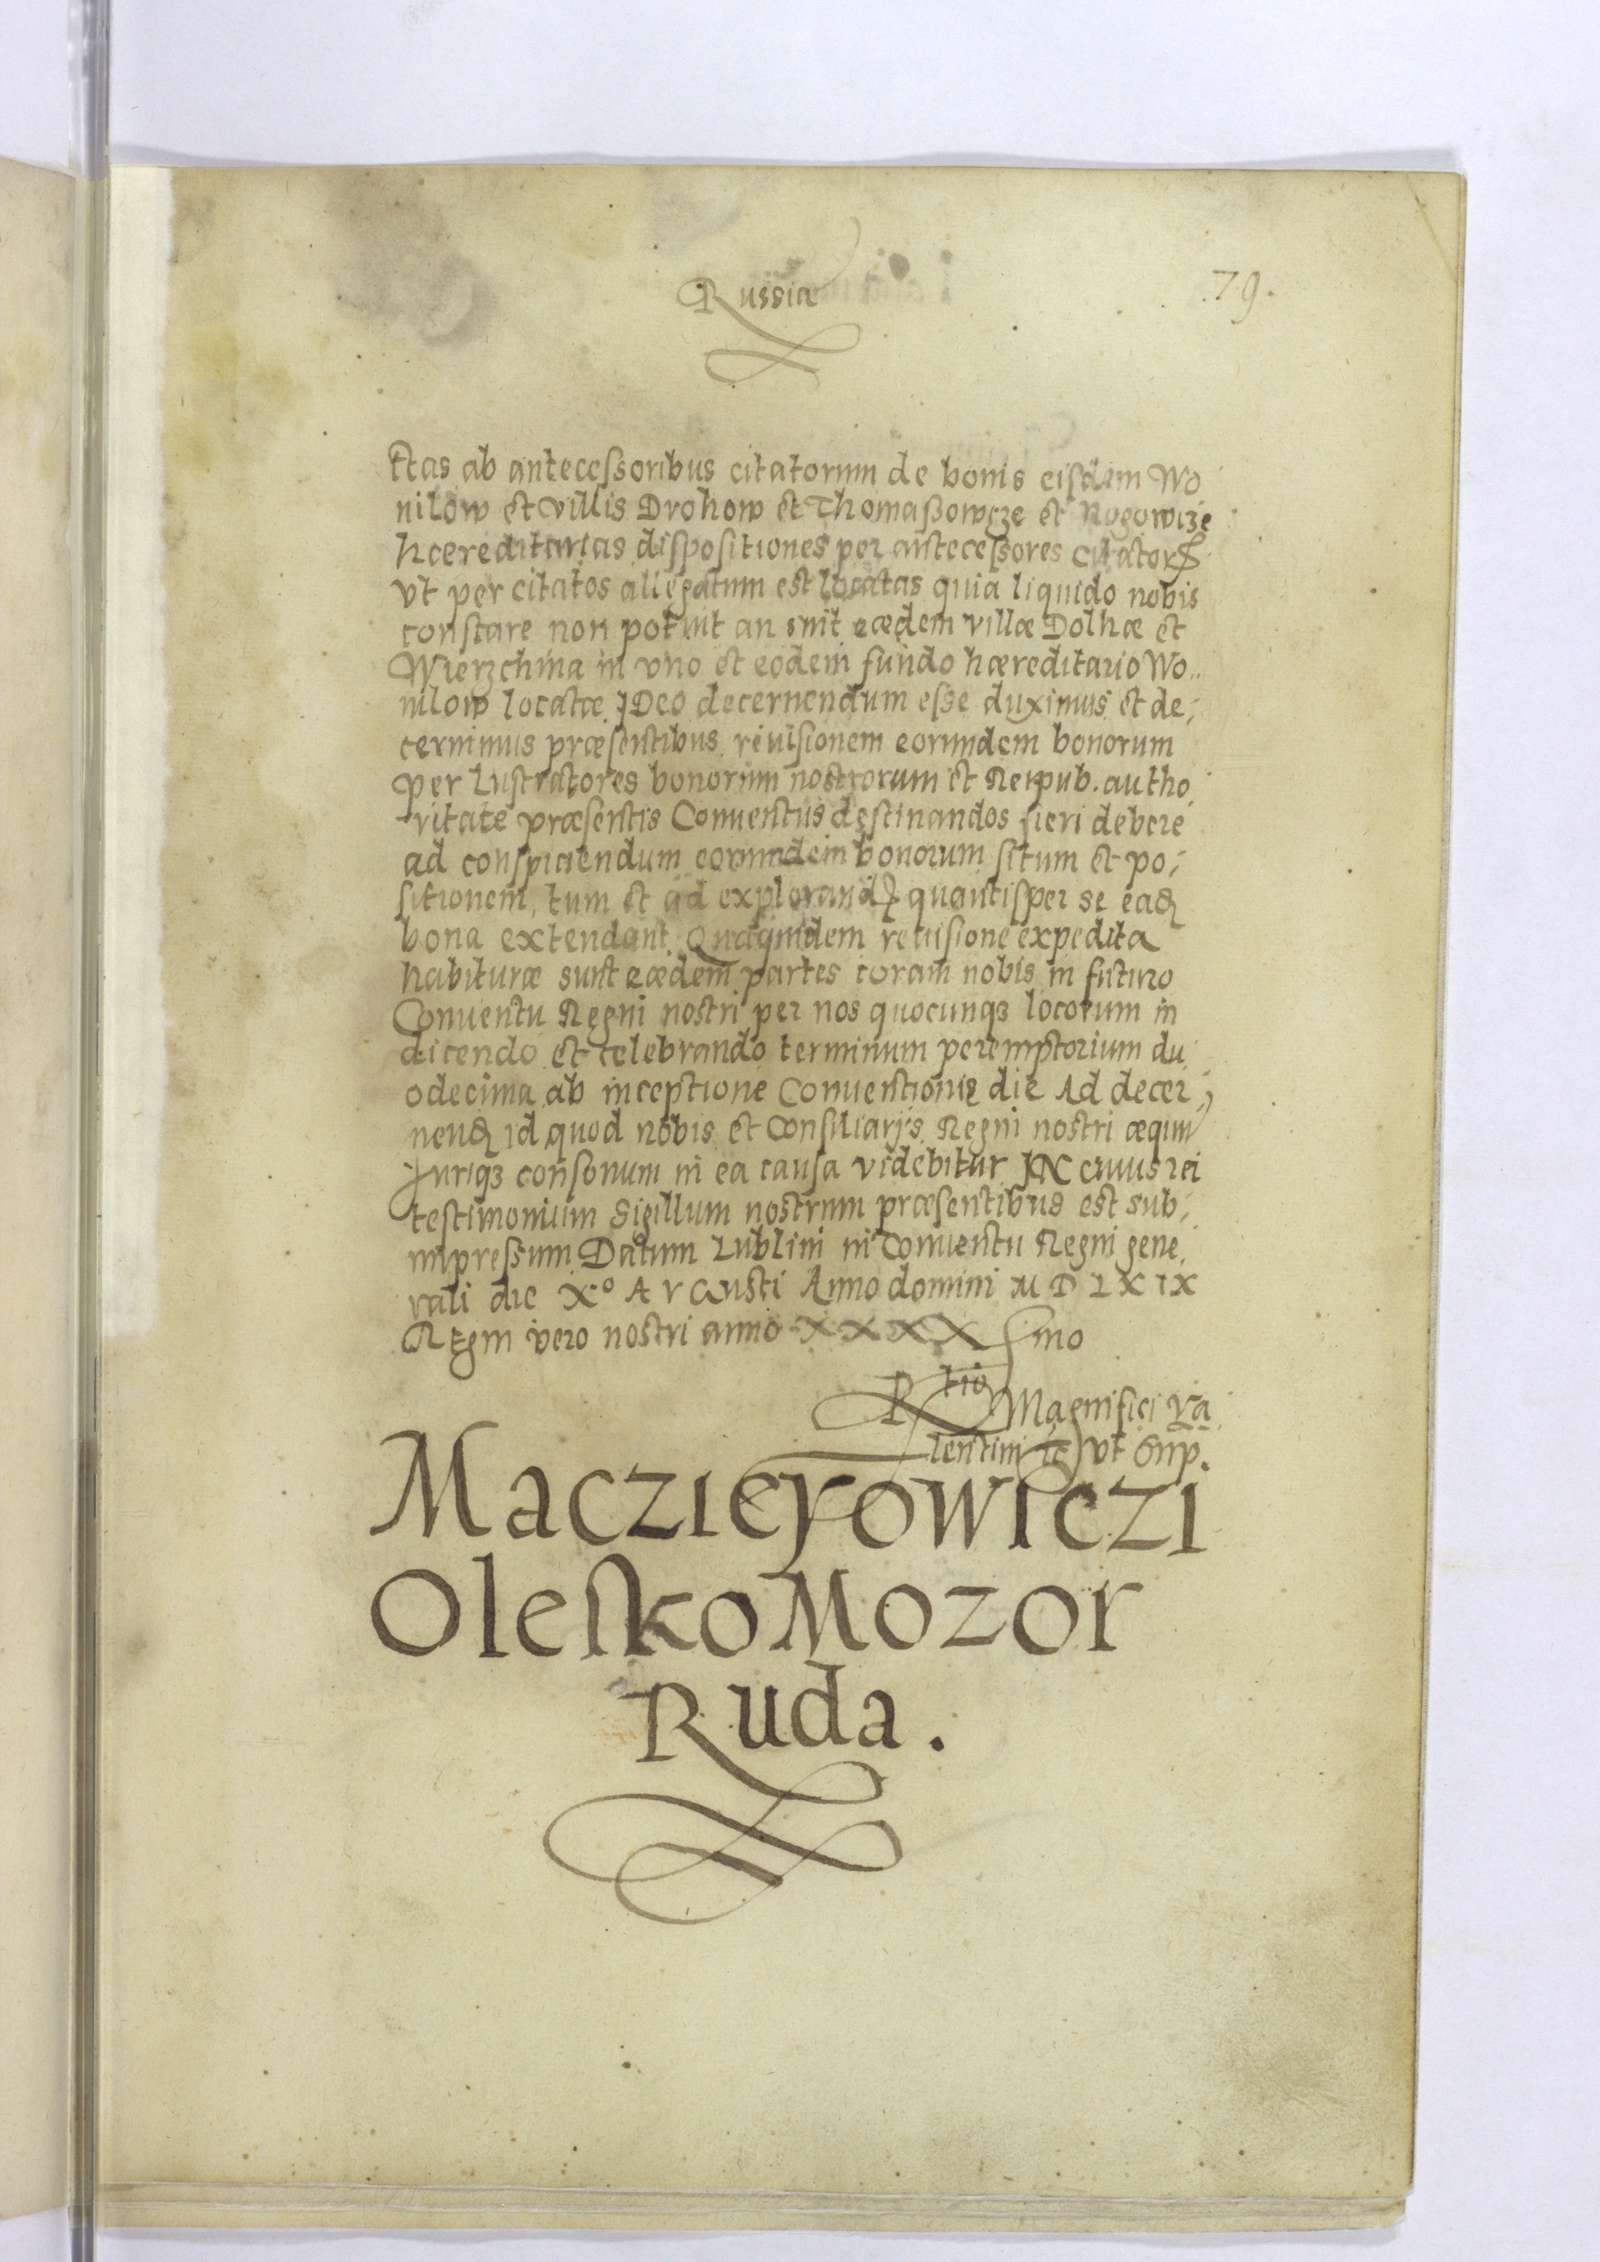 Russia
79.
ctas ab antecessoribus citatorum de bonis eisdem Wo
nilow et villis Drohow et Thomassowcze et Rogowize
hæreditarias dispositiones per antecessores citator
vt per citatos allegatum est locatas quia liquido nobis
constare non potuit an sint eædem villæ Dolhæ et
Wierzchnia in vno et eodem fundo hæreditario Wo..
nilow locatæ IDeo decernendum esse duximus et de,
cernimus præsentibus reuisionem eorundem bonorum
per Lustratores bonorum nostrorum et Reipub. autho,
ritate præsentis Conuentus destinandos fieri debere
ad conspiciendum eorundem bonorum situm et po,
sitionem, tum et ad explorand quantisper se eadę
bona extendant. Quaquidem reuisione expedita
habituræ sunt eædem partes coram nobis in futuro
Conuentu Regni nostri per nos quocunqȝ locorum in
dicendo et celebrando terminum peremptorium du,
odecima ab inceptione Conuentionis die Ad decer,
nendę id quod nobis et Consiliarijs Regni nostri æqum
Juriqȝ consonum in ea causa videbitur IN cuius rei
testimonium Sigillum nostrum præsentibus est sub,
impressum Datum Lublini in Conuentu Regni gene,
rali die Xº AVGusti Anno domini M D L X I X
Regni vero nostri anno X X X X mo
Rtio Magnifici Va,
lentini vt Sup.
Macziejowiczi
Olesko Mozor
Ruda.